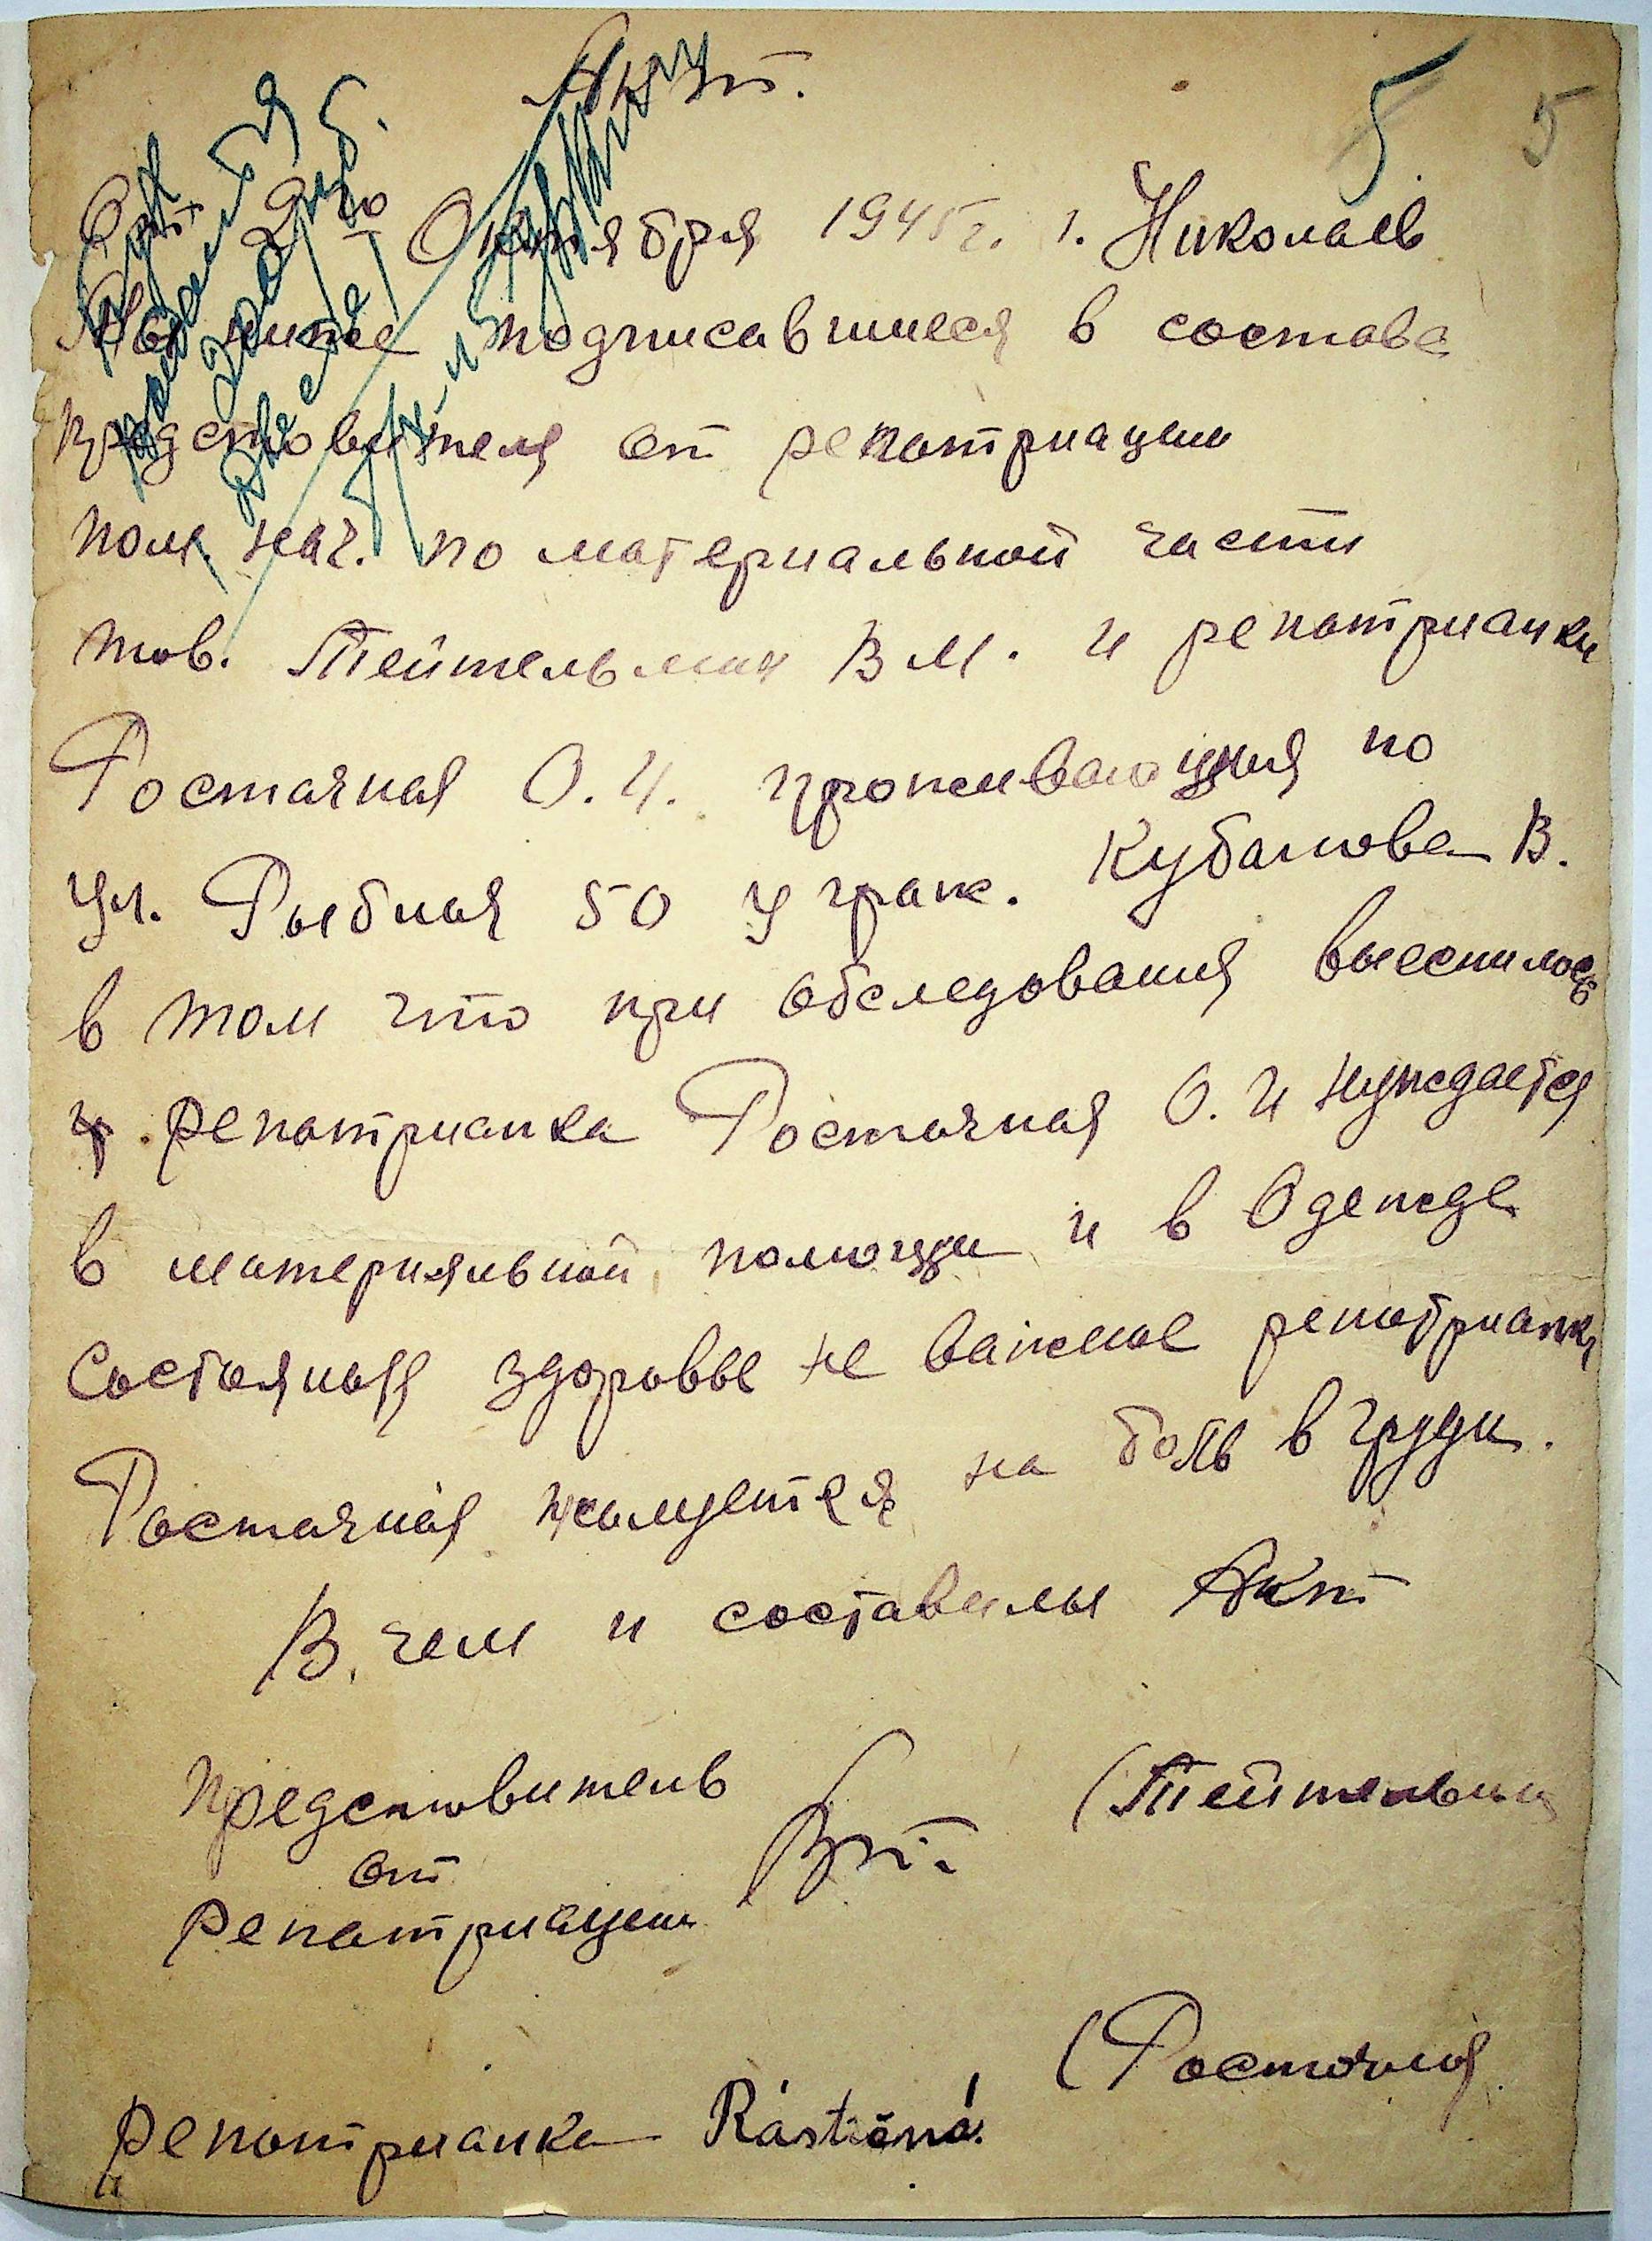 Акт.
5 5
От 9го Октября 1945г. г. Николаев
Мы ниже подписавшиеся в состава
представителя от репатриации
пом. нач. по материальной части
тов. Тейтельман В М. и репатрианки
Ростачная О. И. проживающия по
ул. Рыбная 50 у граж. Кубатова В.
в том что при обследования выеснилось
репатрианка Ростачная О. И нуждается
в материяльной помощи и в Одежде
Состояныя здоровье не важное репатрианка
Ростачная жалуется на боль в груди.
В чем и составили Акт
Представитель (Тейтельман
от
Репатриации
(Ростачная
Репатрианка Rástićná.